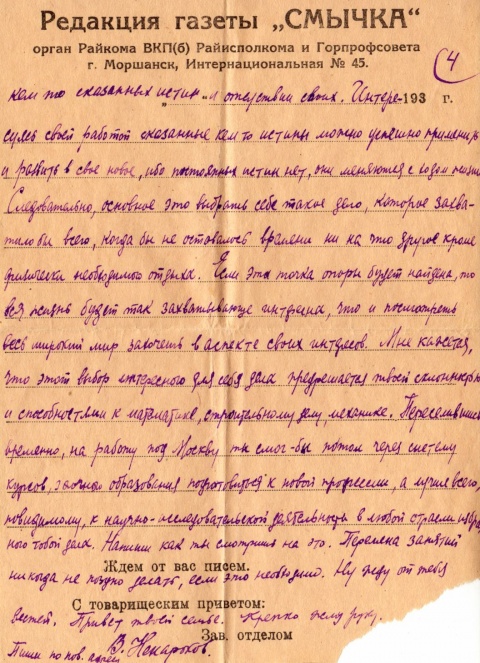 Редакция газеты „СМЫЧКА“
орган Райкома ВКП(б) Райисполкома и Горпрофсовета
г. Моршанск, Интернациональная № 45.
(4
кем то сказанных истин и отсутствии своих. Интере-193 г.
суясь своей работой сказанные кем то истины можно успешно применить
и развить в свое новое, ибо постоянных истин нет, они меняются с ходом жизни
Следовательно, основное это выбрать себе такое дело, которое захва-
тило бы всего, когда бы не оставалось времени ни на что другое кроме
физически необходимого отдыха. Если эта точка опоры будет найдена, то
вся жизнь будет так захватывающе интересна, что и посмотреть
весь широкий мир захочешь в аспекте своих интересов. Мне кажется,
что этот выбор интересного для себя дела предрешается твоей склонностью
и способностями к математике, строительному делу, механике. Переселившись
временно, на работу под Москву ты смог-бы потом через систему
курсов, заочного образования подготовиться к новой профессии, а лучше всего,
повидимому, к научно-исследовательской деятельности в любой отрасли избран
ного тобой дела. Напиши как ты смотришь на это. Перемена занятий
Ждем от вас писем.
никогда не поздно делать, если это необходимо. Ну жду от тебя
С товарищеским приветом:
вестей. Привет твоей семье. Крепко жму руку.
Зав. отделом
Пиши по нов. адресу В.